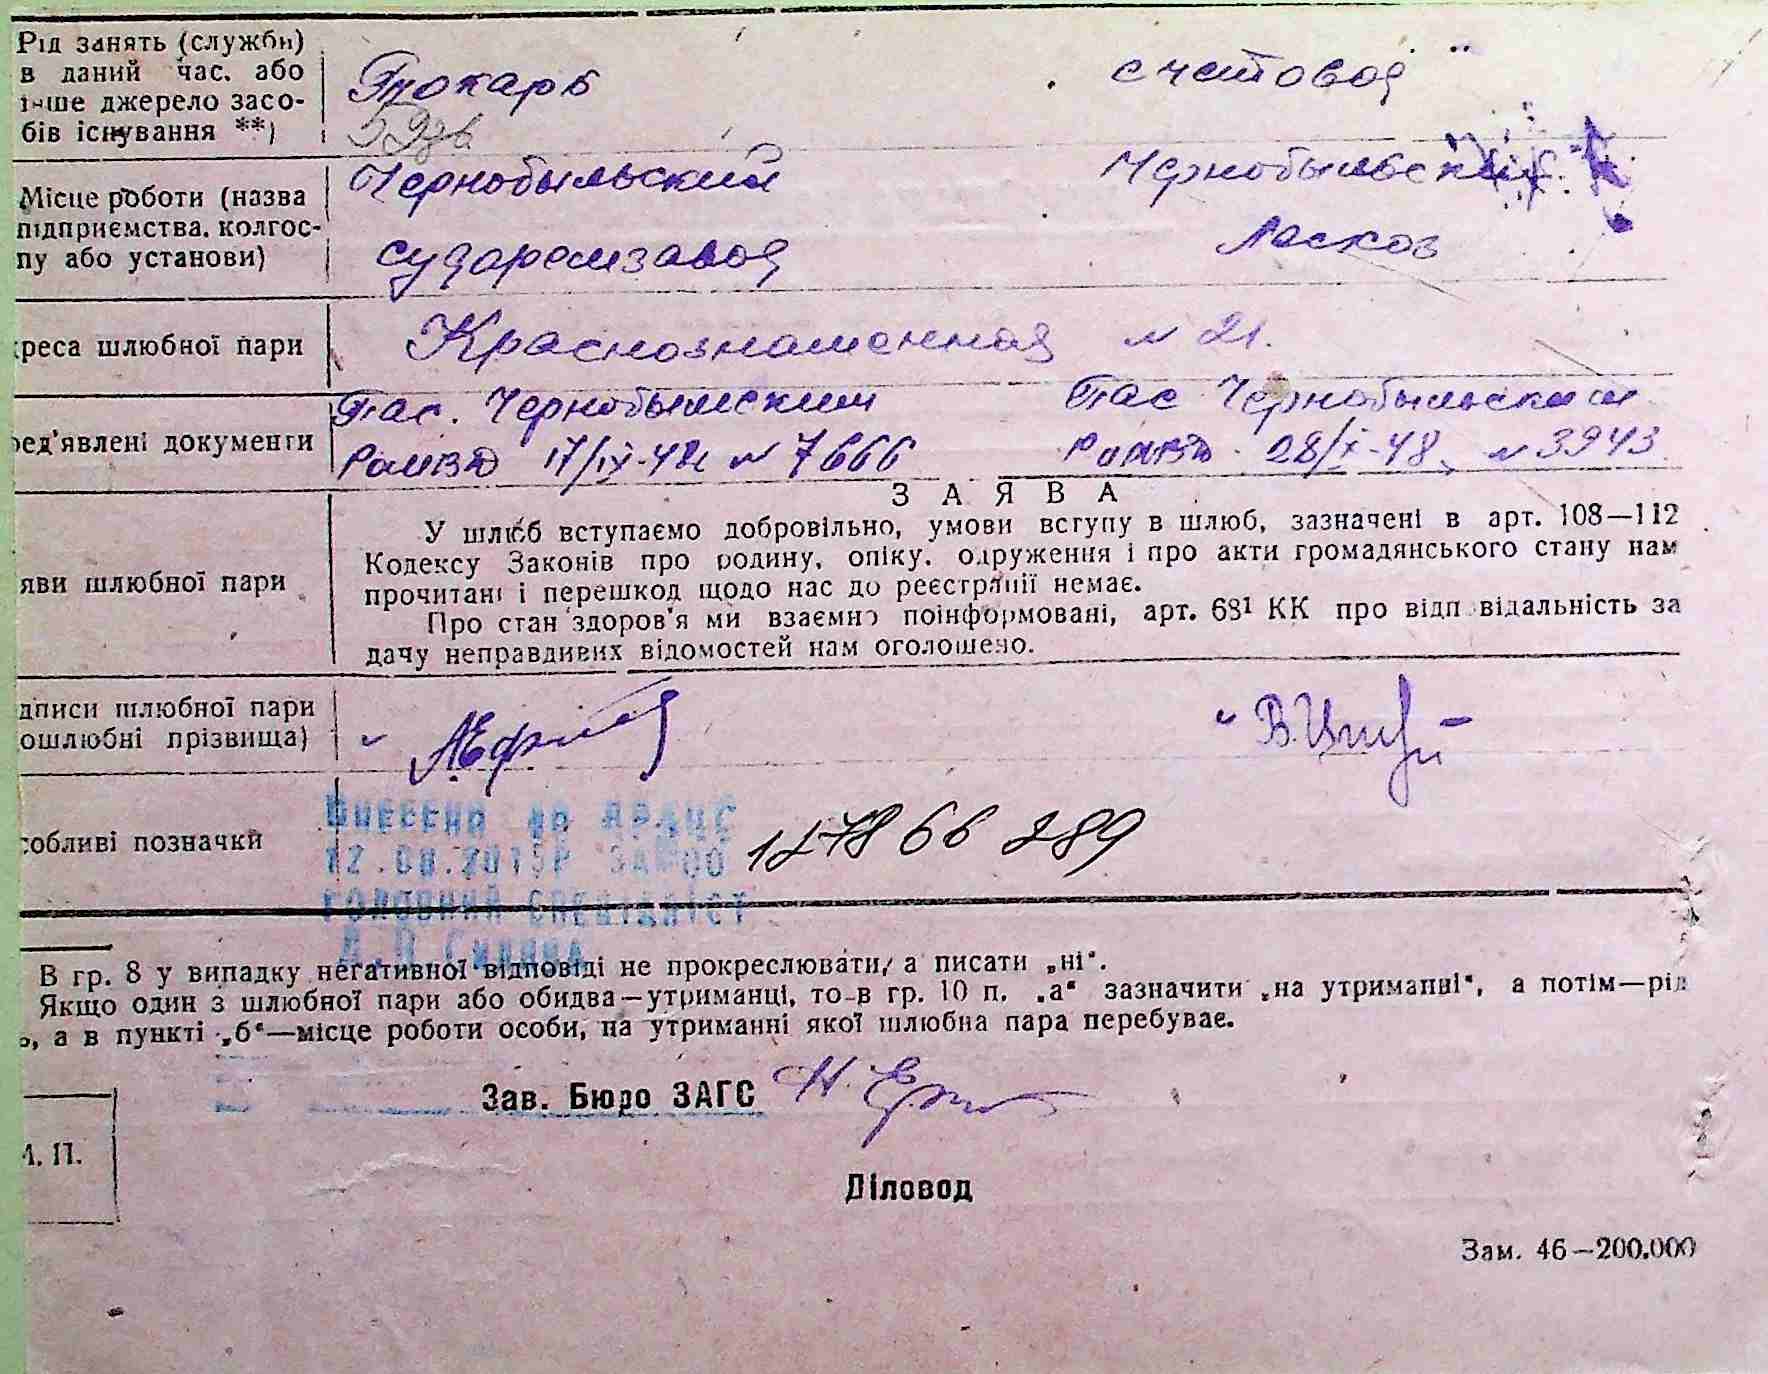 Рід занять (служби)
в даний час, або
інше джерело засо-
бів існування **)
Токарь
счетовод
Місце роботи (назва
підприємства, колгос-
пу або установи)
Чернобыльский
судоремзавод
Чернобыльский
Лесхоз
креса шлюбної пари
Краснознаменная №21.
ред'явлені документи
Пас. Чернобыльским
РОМВД 17/IX-48 № 7666
Пас Чернобыльским
РОМВД 28/X-48 №3943
ЗАЯВА
яви шлюбної пари
У шлюб вступаємо добровільно, умови вступу в шлюб, зазначені в арт. 108—112
Кодексу Законів про родину, опіку, одруження і про акти громадянського стану нам
прочитані і перешкод щодо нас до реєстрації немає.
Про стан здоров'я ми взаємно поінформовані, арт. 68¹ КК про відповідальність за
дачу неправдивих відомостей нам оголошено.
дписи шлюбної пари
ошлюбні прізвища)
собливі позначки
ВНЕСЕНО ДО ДРАЦС
12.08.2015Р ЗА №00
1278 66 289
ГОЛОВНИЙ СПЕЦІАЛІСТ
В гр. 8 у випадку негативної відповіді не прокреслювати, а писати „ні“.
Якщо один з шлюбної пари або обидва—утриманці, то в гр. 10 п. „а“ зазначити „на утриманні“, а потім—рід
ь, а в пункті „б“—місце роботи особи, на утриманні якої шлюбна пара перебуває.
Зав. Бюро ЗАГС
М. П.
Діловод
Зам. 46—200.000